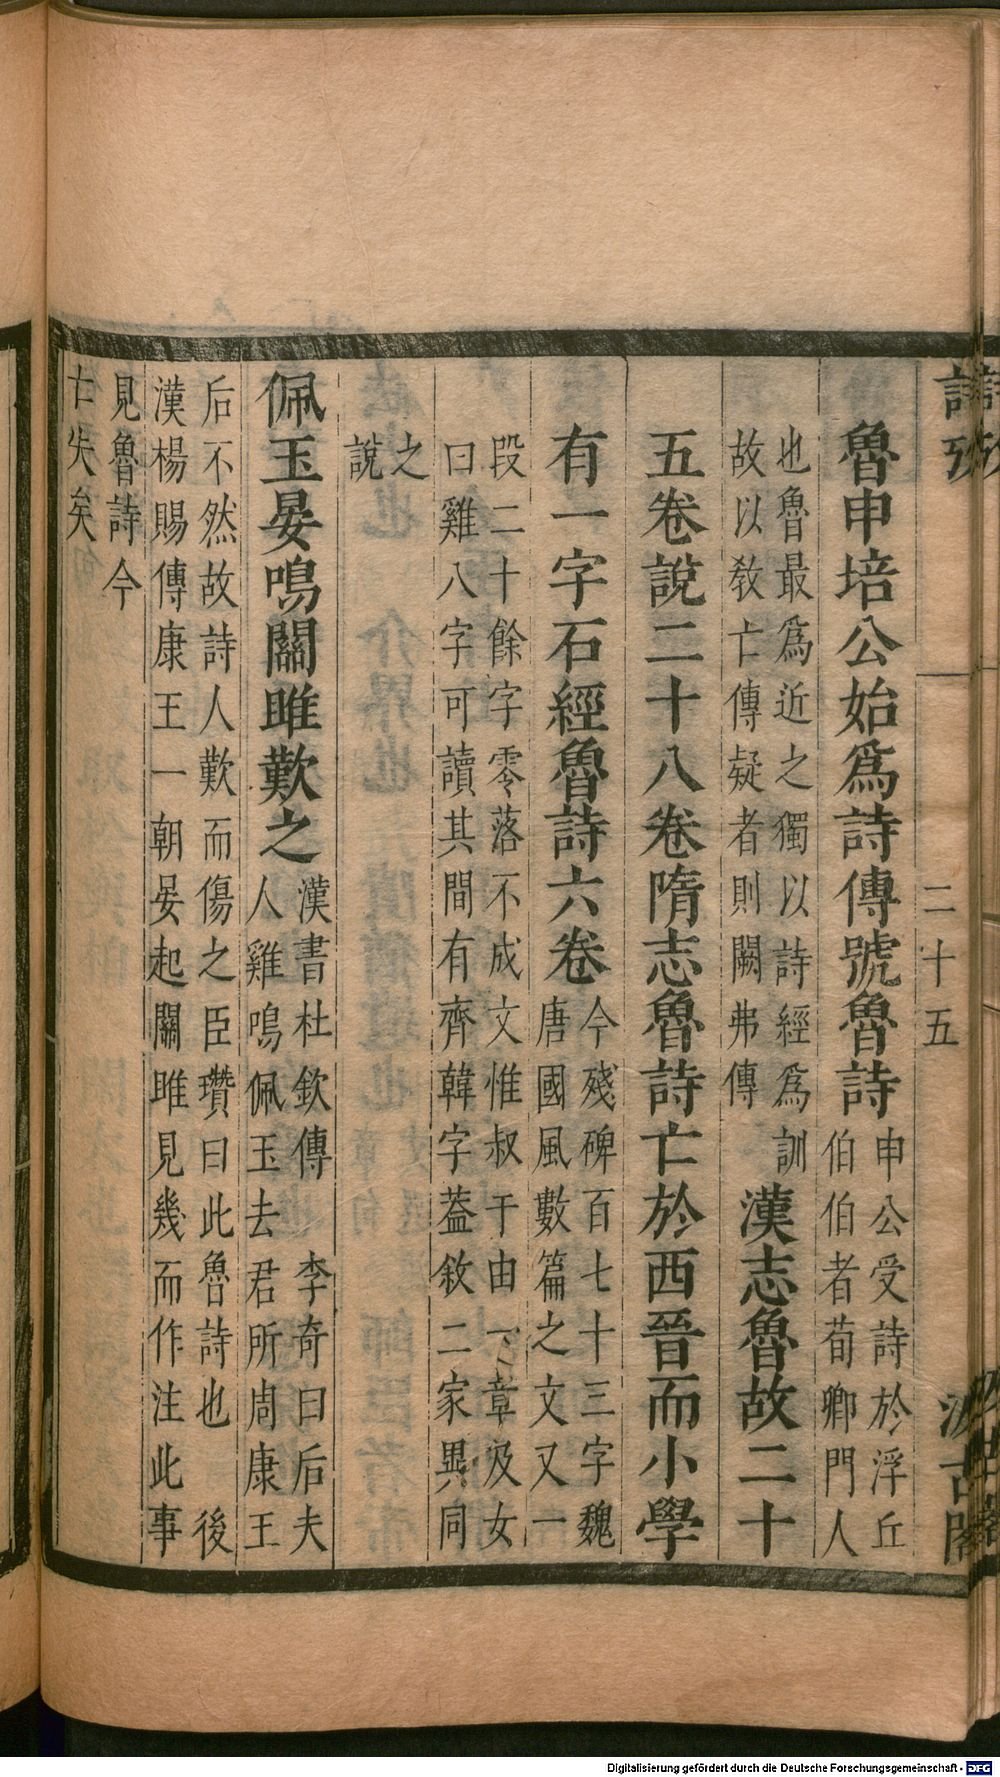 詩攷 二十五 汲古閣
魯申培公始爲詩傳號魯詩
申公受詩於浮丘
伯伯者荀卿門人
也魯最爲近之獨以詩經爲訓
故以敎亡傳疑者則闕弗傳
漢志魯故二十
五卷說二十八卷隋志魯詩亡於西晉而小學
有一字石經魯詩六卷
今殘碑百七十三字魏
唐國風數篇之文又一
段二十餘字零落不成文惟叔于由一章及女
曰雞八字可讀其間有齊韓字葢敘二家異同
之
說
佩玉晏鳴關雎歎之
漢書杜欽傳 李奇曰后夫
人雞鳴佩玉去君所周康王
后不然故詩人歎而傷之臣瓚曰此魯詩也 後
漢楊賜傳康王一朝晏起關雎見幾而作注此事
見魯詩今
亡失矣
Digitalisierung gefördert durch die Deutsche Forschungsgemeinschaft - DFG